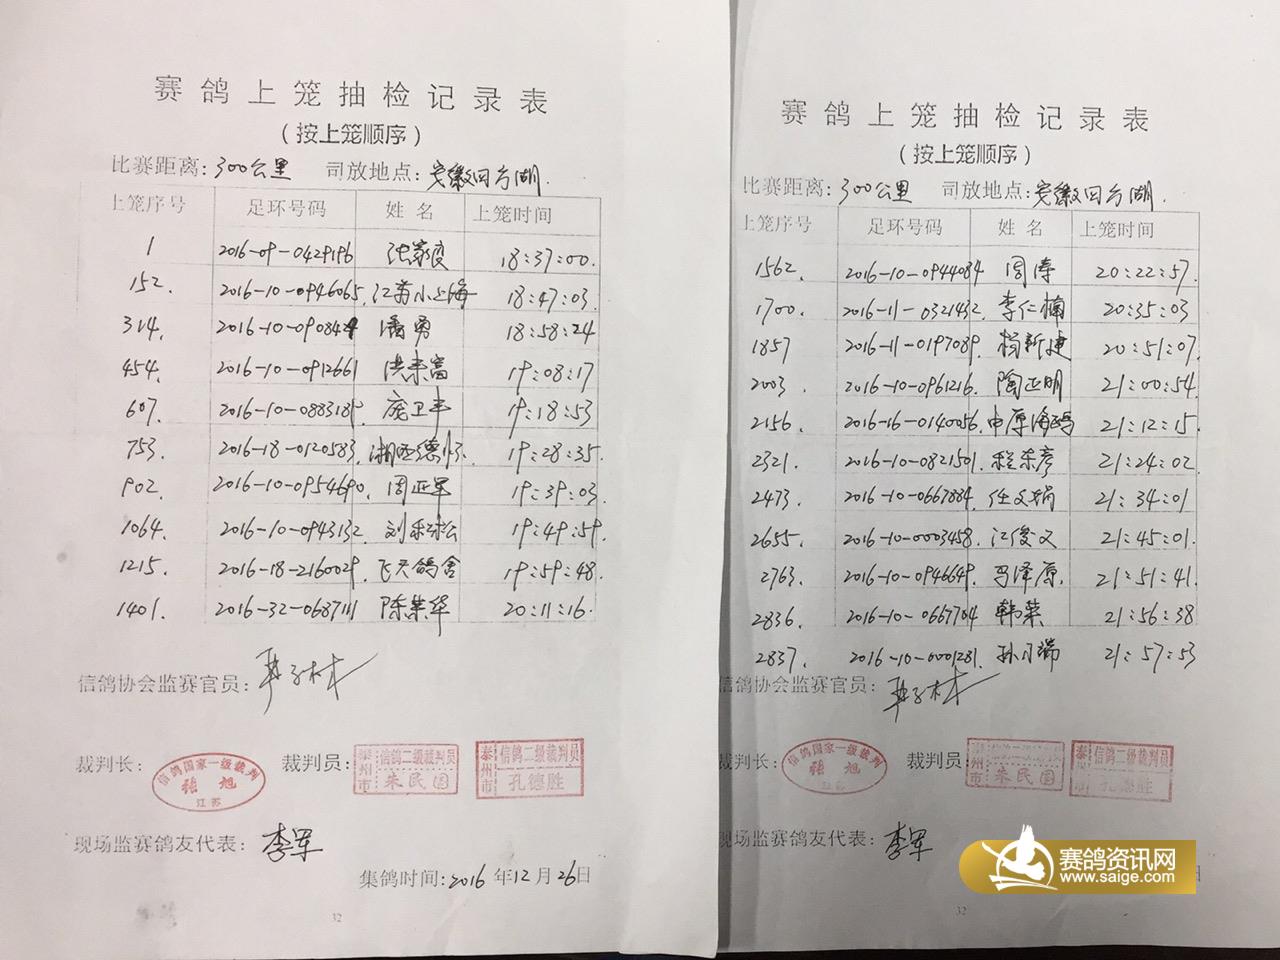 赛鸽上笼抽检记录表
（按上笼顺序）
比赛距离：300公里 司放地点：安徽四方湖
上笼序号 足环号码 姓名 上笼时间
1 2016-09-0429196 18:37:00.
152. 2016-10-0946065. 江苏小上海 18:47:03.
314. 潘勇 18:58:24
454. 2016-10-0912661 洪来富 19:08:17
607. 庞卫丰 19:18:53
753. 2016-18-0120583. 19:28:35.
902. 2016-10-0954690. 周正军 19:39:03.
1064. 2016-10-0943132. 19:49:59.
1215. 2016-18-2160029. 飞天鸽舍 19:59:48.
1401. 2016-32-0687111 陈荣华 20:11:16.
信鸽协会监赛官员：
裁判长： 信鸽国家一级裁判 张旭 江苏 裁判员： 泰州市 信鸽二级裁判员 朱民国 泰州市 信鸽二级裁判员 孔德胜
现场监赛鸽友代表： 李军
集鸽时间：2016年12月26日
32
赛鸽上笼抽检记录表
（按上笼顺序）
比赛距离：300公里 司放地点：安徽四方湖.
上笼序号 足环号码 姓名 上笼时间
1562. 2016-10-0944084 周涛 20:22:57.
1700. 2016-11-0321432. 李仁楠 20:35:03
1857 2016-11-0197089. 杨新建 20:51:07.
2003. 2016-10-0961216. 陶正明 21:00:54.
2156. 2016-16-0140056. 中原海鸥 21:12:15.
2321. 2016-10-0821501. 程东彦 21:24:02.
2473. 2016-10-0667884. 任文娟 21:34:01
2655. 2016-10-0003458. 江俊文 21:45:01.
2763. 2016-10-0946649. 马泽原. 21:51:41.
2836. 2016-10-0667704 韩荣 21:56:38
2837. 2016-10-0001281. 孙月瑞 21:57:53
信鸽协会监赛官员：
裁判长： 信鸽国家一级裁判 张旭 江苏 裁判员： 州市 信鸽二级裁判员 朱民国 泰州市 信鸽二级裁判员 孔德胜
现场监赛鸽友代表： 李军
日
32
赛鸽资讯网
www.saige.com